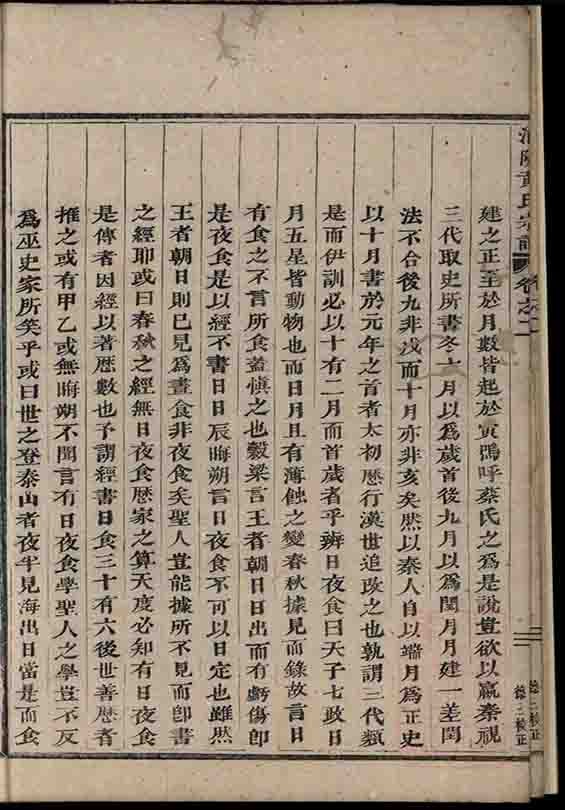 建之正至於月數皆起於寅嗚呼蔡氏之爲是說豈欲以嬴秦視
三代取史所書冬十月以爲歲首後九月以爲閏月月建一差閏
法不合後九非戌而十月亦非亥矣然以秦人自以端月爲正史
以十月書於元年之首者太初歷行漢世追改之也孰謂三代類
是而伊訓必以十有二月而首歲者乎辨日夜食曰天子七政日
月五星皆動物也而日月且有薄蝕之變春秋據見而錄故言日
有食之不言所食蓋愼之也穀梁言王者朝日日出而有虧傷卽
是夜食是以經不書日日辰晦朔言日夜食不可以日定也雖然
王者朝日則已見爲晝食非夜食矣聖人豈能據所不見而卽書
之經耶或曰春秋之經無日夜食歷家之算天度必知有日夜食
是傳者因經以著歷數也予謂經書日食三十有六後世善歷者
推之或有甲乙或無晦朔不聞言有日夜食學聖人之學豈不反
爲巫史家所笑乎或曰世之登泰山者夜半見海出日當是而食
黃氏宗譜
卷之二